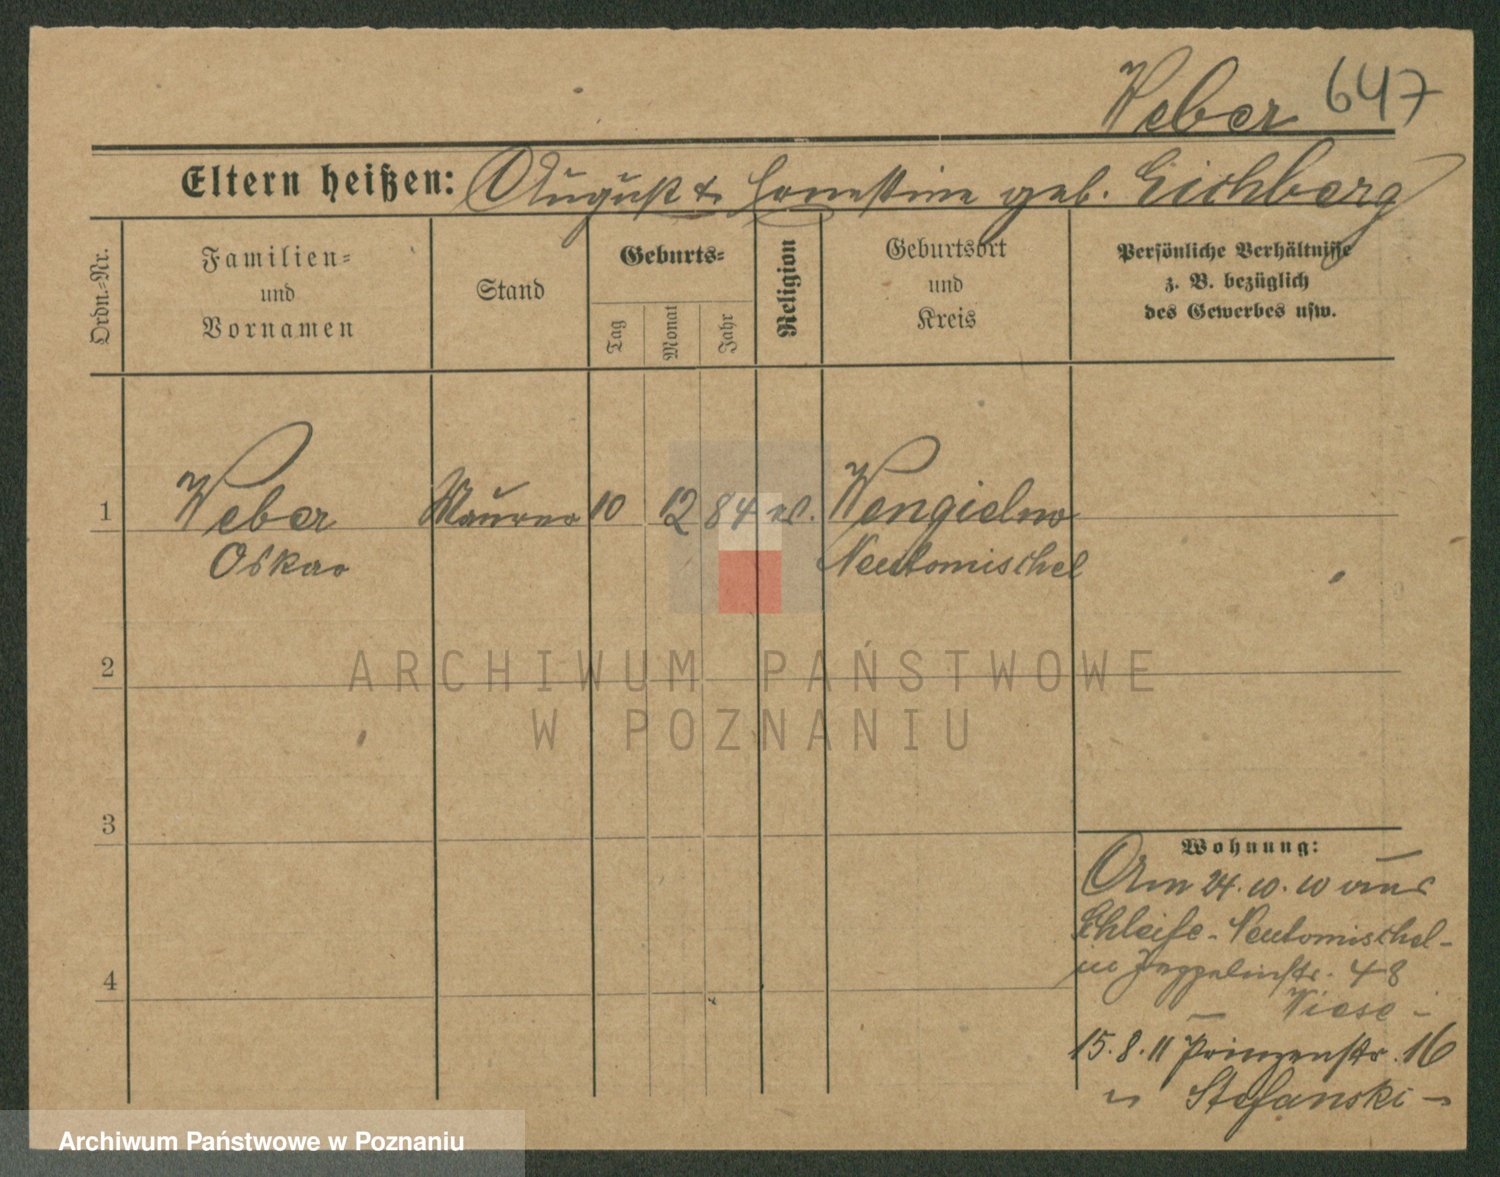 Weber 647
Eltern heißen: August & Ernestine geb. Eichberg
Ordn.-Nr.
Familien-
und
Vornamen
Stand
Geburts-
Tag
Monat
Jahr
Religion
Geburtsort
und
Kreis
Persönliche Verhältnisse
z. B. bezüglich
des Gewerbes usw.
1 Weber Maurer 10 12 84 ev. Wengielno
Oskar Neutomischel
2
3
4
Wohnung:
Am 24.10.10 aus
Schleife - Neutomischel -
Zeppelinstr. 48
Wiese -
15.8.11 Prinzenstr. 16
Stefanski -
ARCHIWUM PAŃSTWOWE
W POZNANIU
Archiwum Państwowe w Poznaniu